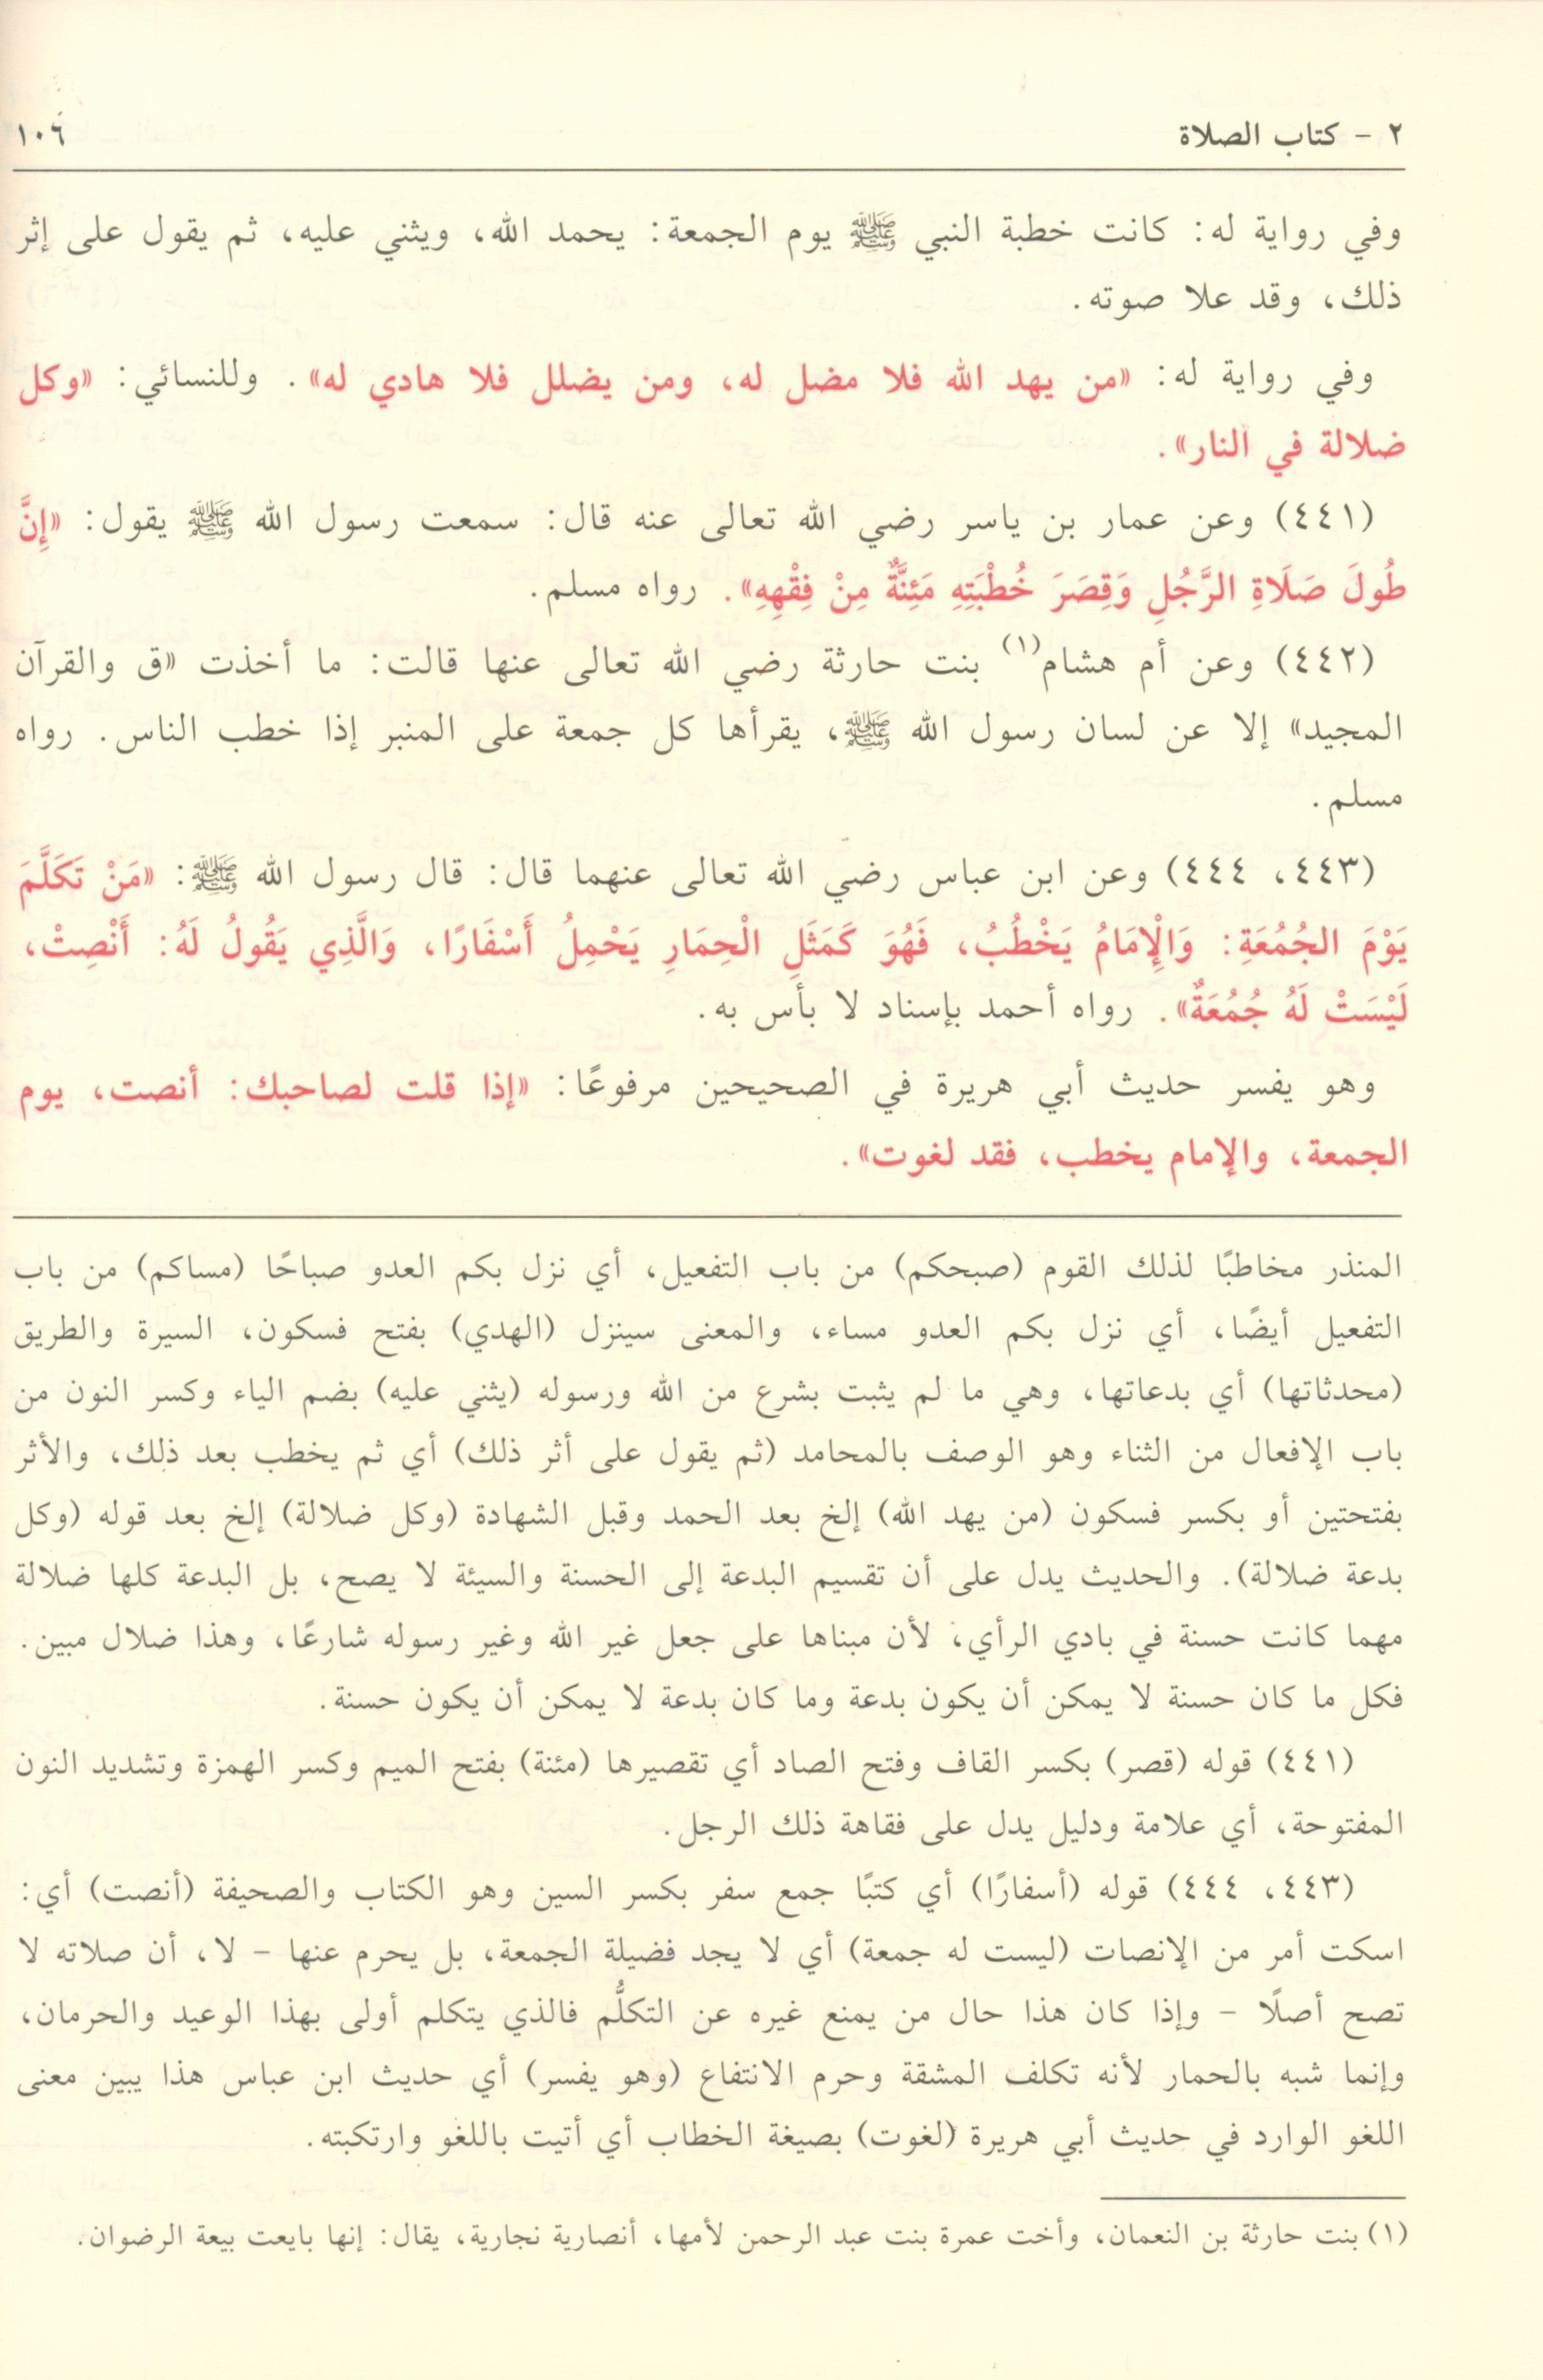 ٢ - كتاب الصلاة
١٠٦
وفي رواية له: كانت خطبة النبي ﷺ يوم الجمعة: يحمد الله، ويثني عليه، ثم يقول على إثر
ذلك، وقد علا صوته.
وفي رواية له: «من يهد الله فلا مضل له، ومن يضلل فلا هادي له». وللنسائي: «وكل
ضلالة في النار».
(٤٤١) وعن عمار بن ياسر رضي الله تعالى عنه قال: سمعت رسول الله ﷺ يقول: «إِنَّ
طُولَ صَلَاةِ الرَّجُلِ وَقِصَرَ خُطْبَتِهِ مَئِنَّةٌ مِنْ فِقْهِهِ». رواه مسلم.
(٤٤٢) وعن أم هشام(١) بنت حارثة رضي الله تعالى عنها قالت: ما أخذت «ق والقرآن
المجيد» إلا عن لسان رسول الله ﷺ، يقرأها كل جمعة على المنبر إذا خطب الناس. رواه
مسلم.
(٤٤٣، ٤٤٤) وعن ابن عباس رضي الله تعالى عنهما قال: قال رسول الله ﷺ: «مَنْ تَكَلَّمَ
يَوْمَ الجُمُعَةِ: وَالْإِمَامُ يَخْطُبُ، فَهُوَ كَمَثَلِ الْحِمَارِ يَحْمِلُ أَسْفَارًا، وَالَّذِي يَقُولُ لَهُ: أَنْصِتْ،
لَيْسَتْ لَهُ جُمُعَةٌ». رواه أحمد بإسناد لا بأس به.
وهو يفسر حديث أبي هريرة في الصحيحين مرفوعًا: «إذا قلت لصاحبك: أنصت، يوم
الجمعة، والإمام يخطب، فقد لغوت».
المنذر مخاطبًا لذلك القوم (صبحكم) من باب التفعيل، أي نزل بكم العدو صباحًا (مساكم) من باب
التفعيل أيضًا، أي نزل بكم العدو مساء، والمعنى سينزل (الهدي) بفتح فسكون، السيرة والطريق
(محدثاتها) أي بدعاتها، وهي ما لم يثبت بشرع من الله ورسوله (يثني عليه) بضم الياء وكسر النون من
باب الإفعال من الثناء وهو الوصف بالمحامد (ثم يقول على أثر ذلك) أي ثم يخطب بعد ذلك، والأثر
بفتحتين أو بكسر فسكون (من يهد الله) إلخ بعد الحمد وقبل الشهادة (وكل ضلالة) إلخ بعد قوله (وكل
بدعة ضلالة). والحديث يدل على أن تقسيم البدعة إلى الحسنة والسيئة لا يصح، بل البدعة كلها ضلالة
مهما كانت حسنة في بادي الرأي، لأن مبناها على جعل غير الله وغير رسوله شارعًا، وهذا ضلال مبين.
فكل ما كان حسنة لا يمكن أن يكون بدعة وما كان بدعة لا يمكن أن يكون حسنة.
(٤٤١) قوله (قصر) بكسر القاف وفتح الصاد أي تقصيرها (مئنة) بفتح الميم وكسر الهمزة وتشديد النون
المفتوحة، أي علامة ودليل يدل على فقاهة ذلك الرجل.
(٤٤٣، ٤٤٤) قوله (أسفارًا) أي كتبًا جمع سفر بكسر السين وهو الكتاب والصحيفة (أنصت) أي:
اسكت أمر من الإنصات (ليست له جمعة) أي لا يجد فضيلة الجمعة، بل يحرم عنها - لا، أن صلاته لا
تصح أصلًا - وإذا كان هذا حال من يمنع غيره عن التكلُّم فالذي يتكلم أولى بهذا الوعيد والحرمان،
وإنما شبه بالحمار لأنه تكلف المشقة وحرم الانتفاع (وهو يفسر) أي حديث ابن عباس هذا يبين معنى
اللغو الوارد في حديث أبي هريرة (لغوت) بصيغة الخطاب أي أتيت باللغو وارتكبته.
(١) بنت حارثة بن النعمان، وأخت عمرة بنت عبد الرحمن لأمها، أنصارية نجارية، يقال: إنها بايعت بيعة الرضوان.